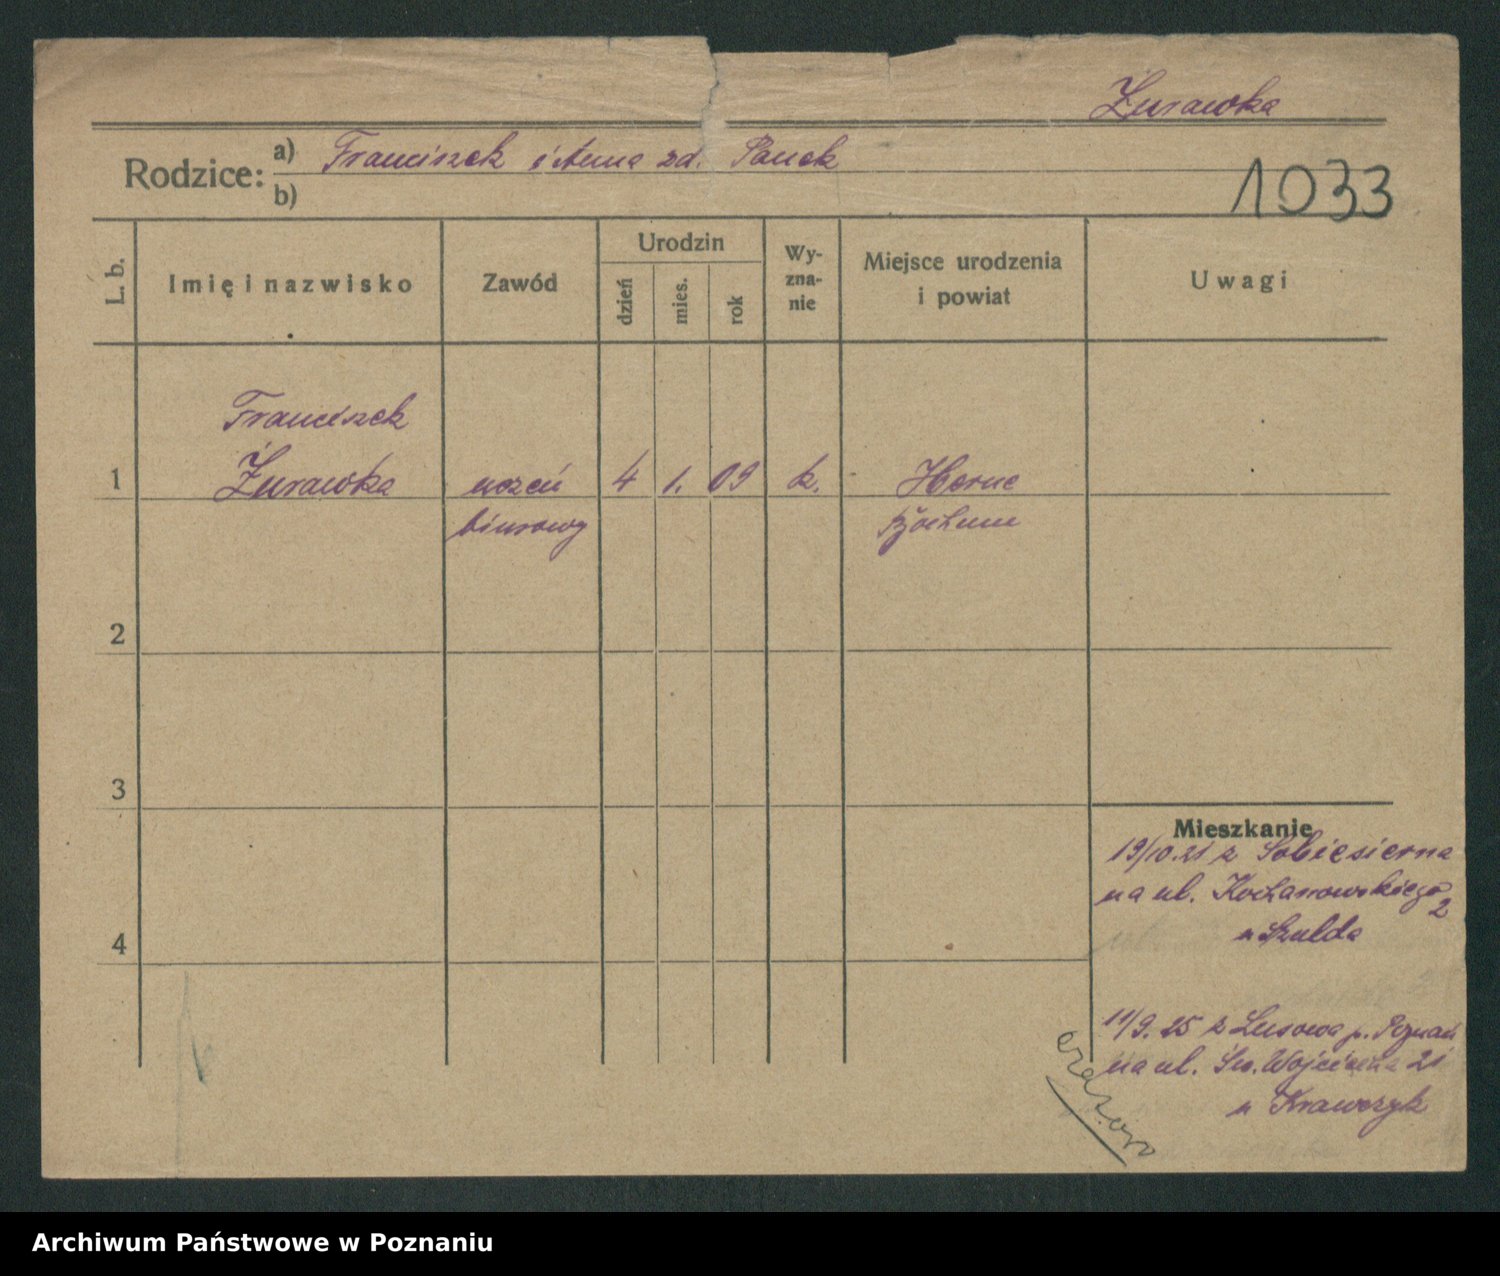 Żurawka
Rodzice: a) Franciszek i Anna zd. Panek
b)
1033
L. b.
Imię i nazwisko
Zawód
Urodzin
dzień
mies.
rok
Wy-
zna-
nie
Miejsce urodzenia
i powiat
Uwagi
Franciszek
1 Żurawka uczeń 4 1. 09 k. Herne
biurowy Bochum
2
3
4
Mieszkanie
19/10.21 z Sobiesierna
na ul. Kochanowskiego 2
u Szulda
11/9. 25 z Lusowa p. Poznań
na ul. Św. Wojciecha 21
u Krawczyk
Archiwum Państwowe w Poznaniu